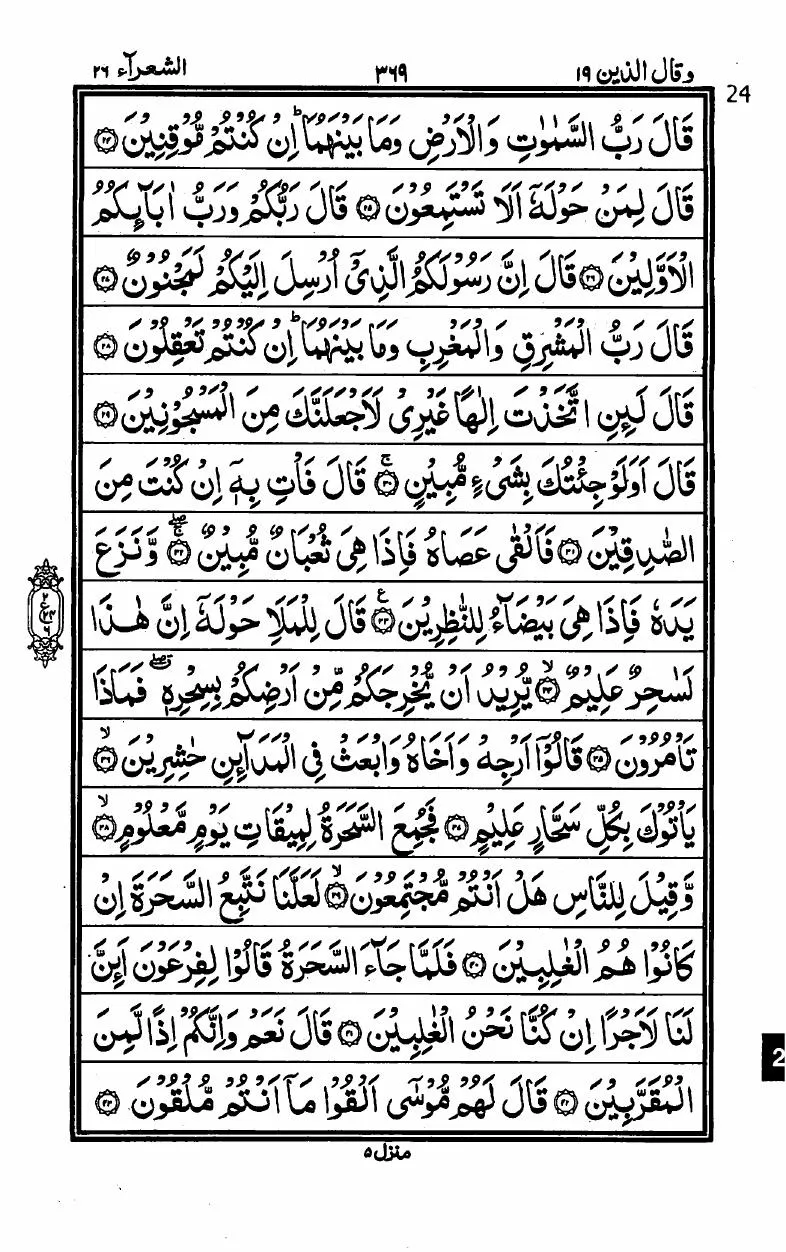 وقال الذين ١٩ ٣٦٩ الشعرآء ٢٦
24
قَالَ رَبُّ السَّمٰوٰتِ وَالْاَرْضِ وَمَا بَيْنَهُمَا ؕ اِنْ كُنْتُمْ مُّوْقِنِيْنَ ﴿۲۴﴾
قَالَ لِمَنْ حَوْلَهٗۤ اَلَا تَسْتَمِعُوْنَ ﴿۲۵﴾ قَالَ رَبُّكُمْ وَرَبُّ اٰبَآئِكُمُ
الْاَوَّلِيْنَ ﴿۲۶﴾ قَالَ اِنَّ رَسُوْلَكُمُ الَّذِيْۤ اُرْسِلَ اِلَيْكُمْ لَمَجْنُوْنٌ ﴿۲۷﴾
قَالَ رَبُّ الْمَشْرِقِ وَالْمَغْرِبِ وَمَا بَيْنَهُمَا ؕ اِنْ كُنْتُمْ تَعْقِلُوْنَ ﴿۲۸﴾
قَالَ لَئِنِ اتَّخَذْتَ اِلٰهًا غَيْرِيْ لَاَجْعَلَنَّكَ مِنَ الْمَسْجُوْنِيْنَ ﴿۲۹﴾
قَالَ اَوَلَوْ جِئْتُكَ بِشَيْءٍ مُّبِيْنٍ ۚ﴿۳۰﴾ قَالَ فَاْتِ بِهٖۤ اِنْ كُنْتَ مِنَ
الصّٰدِقِيْنَ ﴿۳۱﴾ فَاَلْقٰى عَصَاهُ فَاِذَا هِيَ ثُعْبَانٌ مُّبِيْنٌ ۚۖ﴿۳۲﴾ وَّنَزَعَ
يَدَهٗ فَاِذَا هِيَ بَيْضَآءُ لِلنّٰظِرِيْنَ ﴿۳۳﴾ ع قَالَ لِلْمَلَاِ حَوْلَهٗۤ اِنَّ هٰذَا
لَسٰحِرٌ عَلِيْمٌ ۙ﴿۳۴﴾ يُّرِيْدُ اَنْ يُّخْرِجَكُمْ مِّنْ اَرْضِكُمْ بِسِحْرِهٖ ۖ فَمَاذَا
تَاْمُرُوْنَ ﴿۳۵﴾ قَالُوْۤا اَرْجِهْ وَاَخَاهُ وَابْعَثْ فِي الْمَدَآئِنِ حٰشِرِيْنَ ۙ﴿۳۶﴾
يَاْتُوْكَ بِكُلِّ سَحَّارٍ عَلِيْمٍ ﴿۳۷﴾ فَجُمِعَ السَّحَرَةُ لِمِيْقَاتِ يَوْمٍ مَّعْلُوْمٍ ۙ﴿۳۸﴾
وَّقِيْلَ لِلنَّاسِ هَلْ اَنْتُمْ مُّجْتَمِعُوْنَ ۙ﴿۳۹﴾ لَعَلَّنَا نَتَّبِعُ السَّحَرَةَ اِنْ
كَانُوْا هُمُ الْغٰلِبِيْنَ ﴿۴۰﴾ فَلَمَّا جَآءَ السَّحَرَةُ قَالُوْا لِفِرْعَوْنَ اَئِنَّ
لَنَا لَاَجْرًا اِنْ كُنَّا نَحْنُ الْغٰلِبِيْنَ ﴿۴۱﴾ قَالَ نَعَمْ وَاِنَّكُمْ اِذًا لَّمِنَ
الْمُقَرَّبِيْنَ ﴿۴۲﴾ قَالَ لَهُمْ مُّوْسٰۤى اَلْقُوْا مَاۤ اَنْتُمْ مُّلْقُوْنَ ﴿۴۳﴾
منزل ۵
2